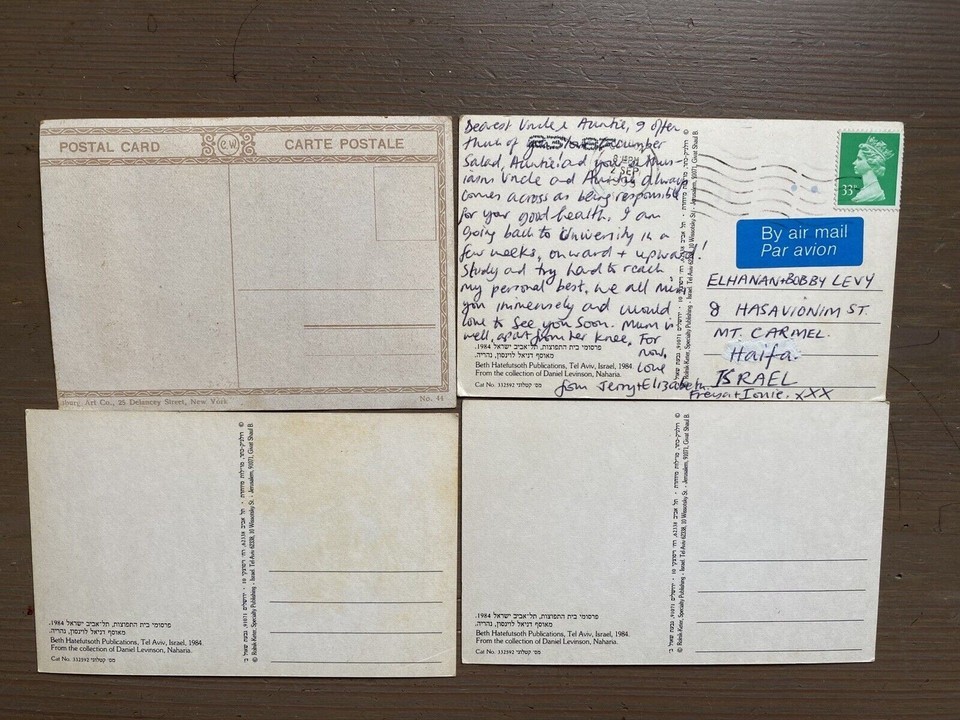 POSTAL CARD
C.W
CARTE POSTALE
burg. Art Co., 25 Delancey Street, New York
No. 44
Dearest Uncle & Auntie, I often
think of cucumber
Salad, Auntie! and your enthus-
iasm Uncle and Auntie always
comes across as being responsible
for your good health. I am
going back to University in a
few weeks, onward + upward!
Study and try hard to reach
my personal best, we all miss
you immensely and would
love to see you soon. Mum is
well, apart from her knee, For
now,
Love
from Jerry+Elizabeth
Freya+Ionie. xXX
2 SEP
33
By air mail
Par avion
ELHANAN+BOBBY LEVY
8 HASAVIONIM ST.
MT. CARMEL.
Haifa.
ISRAEL
פרסומי בית התפוצות, תל־אביב ישראל 1984.
מאוסף דניאל לוינסון, נהריה.
Beth Hatefutsoth Publications, Tel Aviv, Israel, 1984.
From the collection of Daniel Levinson, Naharia.
Cat No. 332592 מס׳ קטלוגי
© רולניק-כתר, מו״לות מיוחדת · תל אביב 62338, רח׳ ויסוצקי 10 · ירושלים 91071, גבעת שאול ב׳
© Rolnik-Keter, Specialty Publishing - Israel. Tel Aviv 62338, 10 Wissotsky St. - Jerusalem, 91071, Givat Shaul B.
פרסומי בית התפוצות, תל־אביב ישראל 1984.
מאוסף דניאל לוינסון, נהריה.
Beth Hatefutsoth Publications, Tel Aviv, Israel, 1984.
From the collection of Daniel Levinson, Naharia.
Cat No. 332592 מס׳ קטלוגי
© רולניק-כתר, מו״לות מיוחדת · תל אביב 62338, רח׳ ויסוצקי 10 · ירושלים 91071, גבעת שאול ב׳
© Rolnik-Keter, Specialty Publishing - Israel. Tel Aviv 62338, 10 Wissotsky St. - Jerusalem, 91071, Givat Shaul B.
פרסומי בית התפוצות, תל־אביב ישראל 1984.
מאוסף דניאל לוינסון, נהריה.
Beth Hatefutsoth Publications, Tel Aviv, Israel, 1984.
From the collection of Daniel Levinson, Naharia.
Cat No. 332592 מס׳ קטלוגי
© רולניק-כתר, מו״לות מיוחדת · תל אביב 62338, רח׳ ויסוצקי 10 · ירושלים 91071, גבעת שאול ב׳
© Rolnik-Keter, Specialty Publishing - Israel. Tel Aviv 62338, 10 Wissotsky St. - Jerusalem, 91071, Givat Shaul B.